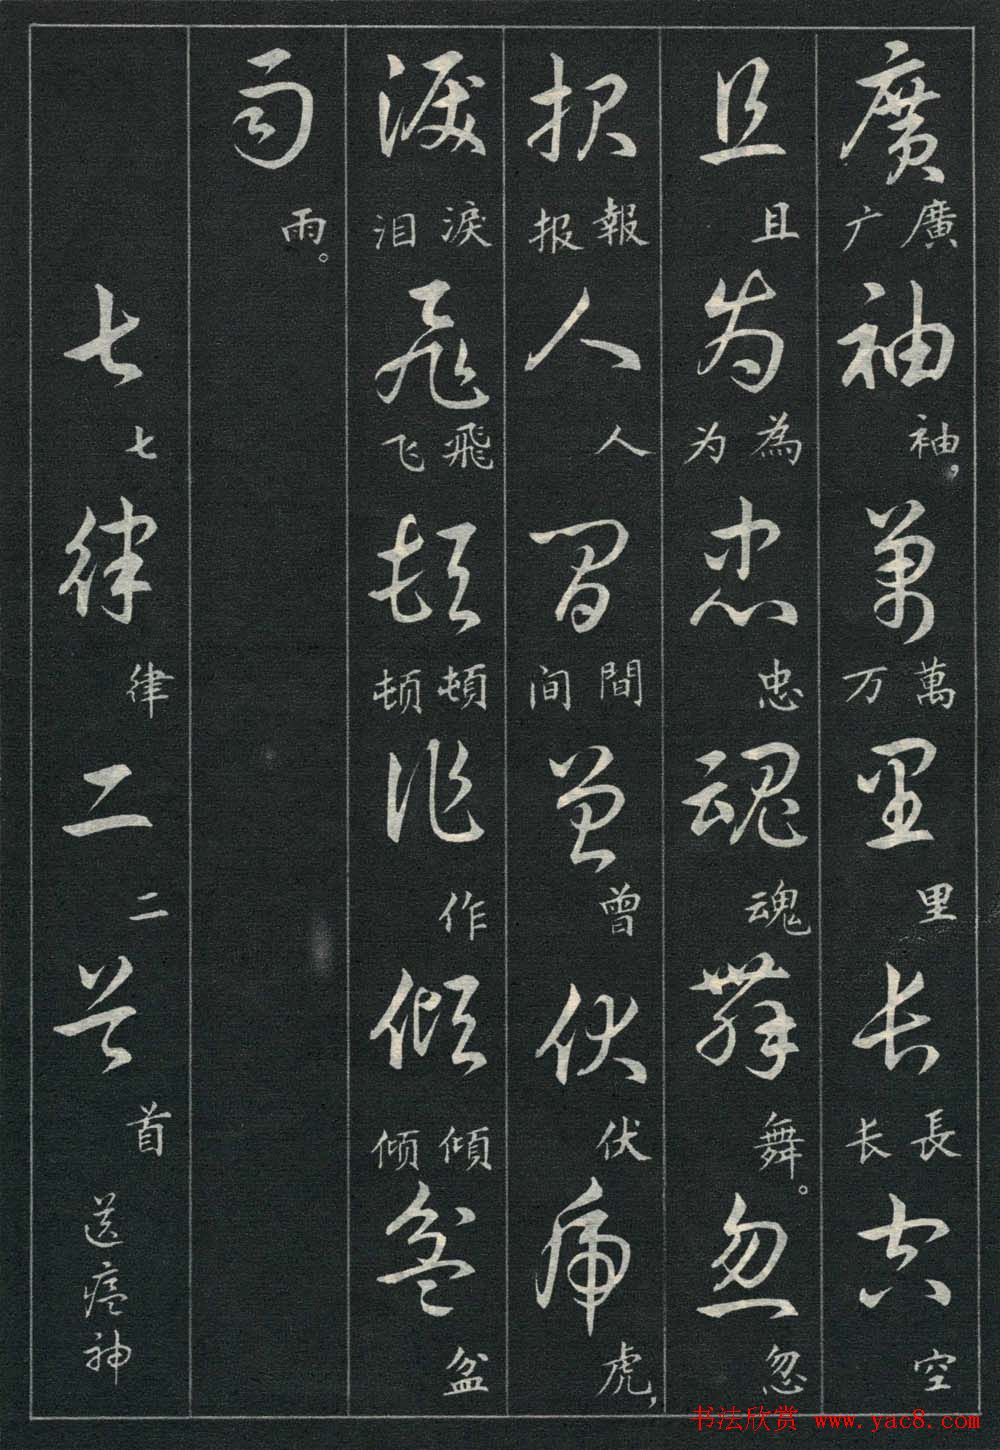 廣廣广袖袖，萬萬万里里長長长空空
且且為為为忠忠魂魂舞舞。忽忽
報報报人人間間间曾曾伏伏虎虎，
淚淚泪飛飛飞頓頓顿作作傾傾倾盆盆
雨雨。
七七律律二二首首送瘟神
书法欣赏 www.yac8.com